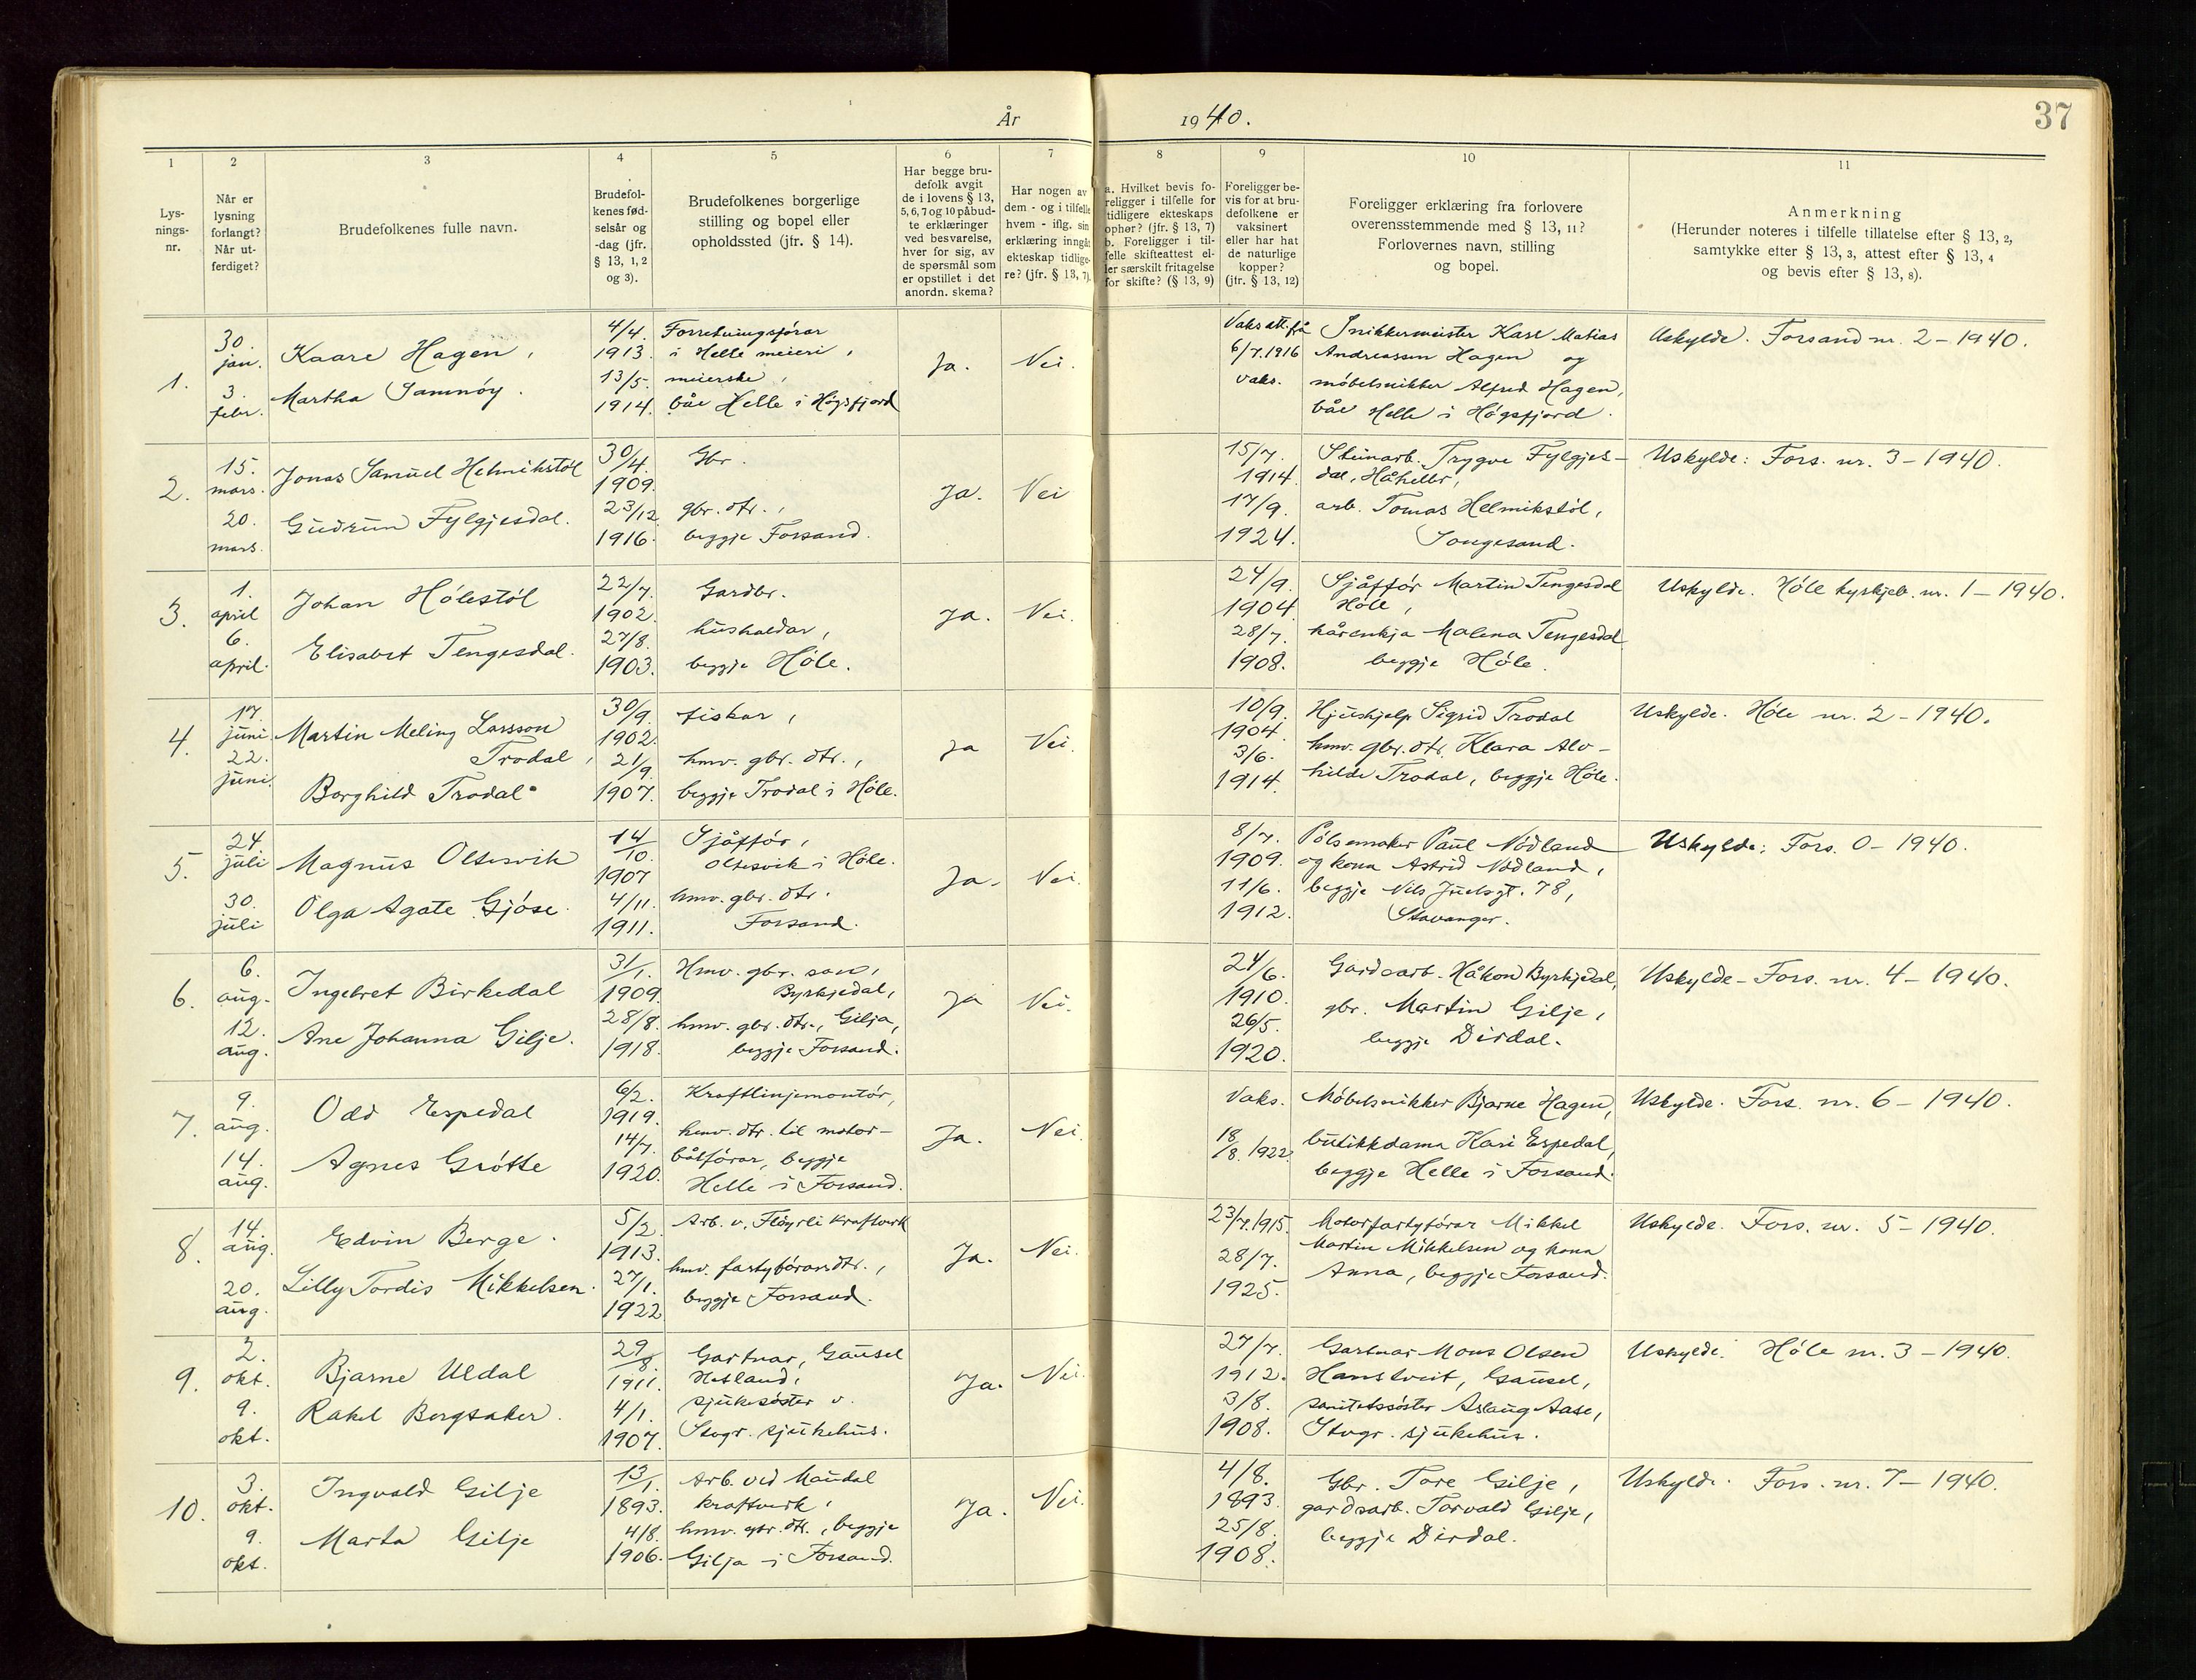 År 1940.
37
1
2
3
4
5
6
7
8
9
10
11
Lys-
nings-
nr.
Når er
lysning
forlangt?
Når ut-
ferdiget?
Brudefolkenes fulle navn.
Brudefol-
kenes fød-
selsår og
-dag (jfr.
§ 13, 1, 2
og 3).
Brudefolkenes borgerlige
stilling og bopel eller
opholdssted (jfr. § 14).
Har begge bru-
defolk avgit
de i lovens § 13,
5, 6, 7 og 10 påbud-
te erklæringer
ved besvarelse,
hver for sig, av
de spørsmål som
er opstillet i det
anordn. skema?
Har nogen av
dem - og i tilfelle
hvem - iflg. sin
erklæring inngåt
ekteskap tidlige-
re? (jfr. § 13, 7).
a. Hvilket bevis fo-
religger i tilfelle for
tidligere ekteskaps
ophør? (jfr. § 13, 7)
b. Foreligger i til-
felle skifteattest el-
ler særskilt fritagelse
for skifte? (§ 13, 9)
Foreligger be-
vis for at bru-
defolkene er
vaksinert
eller har hat
de naturlige
kopper?
(jfr. § 13, 12)
Foreligger erklæring fra forlovere
overensstemmende med § 13, 11?
Forlovernes navn, stilling
og bopel.
Anmerkning
(Herunder noteres i tilfelle tillatelse efter § 13, 2,
samtykke efter § 13, 3, attest efter § 13, 4
og bevis efter § 13, 8).
1.
30.
jan.
3.
febr.
Kaare Hagen,
Martha Samnøy.
4/4.
1913.
13/5.
1914.
Forretningsførar
i Helle meieri,
meierske,
båe Helle i Høgsfjord
Ja.
Nei.
Vaks att. frå
6/7.1916
Vaks.
Snikkermeister Karl Matias
Andreassen Hagen og
møbelsnikker Alfred Hagen,
båe Helle i Høgsfjord.
Uskylde. Forsand nr. 2 - 1940.
2.
15.
mars.
20.
mars.
Jonas Samuel Helmikstøl
Gudrun Fylgjesdal.
30/4.
1909.
23/12
1916.
Gbr.
gbr. dtr.,
beggje Forsand.
Ja.
Nei
15/7.
1914.
17/9.
1924.
Steinarb. Trygve Fylgjes-
dal, Håheller,
arb. Tomas Helmikstøl,
Songesand.
Uskylde: Fors. nr. 3 - 1940.
3.
1.
april
6.
april.
Johan Hølestøl
Elisabet Tengesdal.
22/7.
1902.
27/8.
1903.
Gardbr.
husholdar,
beggje Høle.
Ja.
Nei.
24/9.
1904.
28/7.
1908.
Sjåffør Martin Tengesdal
Høle,
kårenkja Malena Tengesdal
beggje Høle.
Uskylde. Høle kyrkjeb. nr. 1 - 1940.
4.
17.
juni.
22.
juni.
Martin Meling Larsson
Trodal,
Borghild Trodal.
30/9.
1902.
21/9.
1907.
fiskar,
hmv. gbr. dtr.,
beggje Trodal i Høle.
Ja
Nei.
10/9.
1904.
3/6.
1914.
Hjushjelp Sigrid Trodal
hmv. gbr. dtr. Klara Alv-
hilde Trodal, beggje Høle.
Uskylde. Høle nr. 2 - 1940.
5.
24
juli
30.
juli
Magnus Oltesvik
Olga Agate Gjøse.
14/10.
1907
4/11.
1911.
Sjåffør,
Oltesvik i Høle.
hmv. gbr. dtr.
Forsand.
Ja.
Nei.
8/7.
1909.
11/6.
1912.
Pølsemaker Paul Nødland
og kona Astrid Nødland,
beggje Nils Juelsgt. 78,
Stavanger.
Uskylde: Fors. 0 - 1940.
6.
6.
aug.
12.
aug.
Ingebret Birkedal
Ane Johanna Gilje.
31/1.
1909.
28/8.
1918.
Hmv. gbr. son,
Byrkjedal,
hmv. gbr. dtr., Gilja,
beggje Forsand.
Ja
Nei.
24/6.
1910.
26/5.
1920.
Gardsarb. Håkon Byrkjedal,
gbr. Martin Gilje,
beggje Dirdal.
Uskylde - Fors. nr. 4 - 1940.
7.
9.
aug.
14.
aug.
Odd Espedal
Agnes Grøtte
6/2.
1919.
14/7.
1920.
Kraftlinjemontør,
hmv. dtr. til motor-
båtførar, beggje
Helle i Forsand.
Ja.
Nei.
Vaks.
18/8. 1922.
Møbelsnikker Bjarne Hagen,
butikkdama Kari Espedal,
beggje Helle i Forsand.
Uskylde. Fors. nr. 6 - 1940.
8.
14.
aug.
20.
aug.
Edvin Berge.
Lilly Tordis Mikkelsen.
5/2.
1913.
27/1.
1922
Arb. v. Fløyrli kraftverk
hmv. fartyførardtr.,
beggje Forsand.
Ja.
Nei.
23/7.1915.
28/7.
1925.
Motorfartyførar Mikkel
Martin Mikkelsen og kona
Anna, beggje Forsand.
Uskylde. Fors. nr. 5 - 1940.
9.
2.
okt.
9.
okt.
Bjarne Uldal
Rakel Bergsaker.
29/8.
1911.
4/1.
1907.
Gartnar, Gausel
Hetland,
sjukesøster v.
Stvgr. sjukehus.
Ja.
Nei.
27/7.
1912.
3/8.
1908.
Gartnar Mons Olsen
Hamstveit, Gausel,
sanitetssøster Aslaug Aase,
Stvgr. sjukehus.
Uskylde. Høle nr. 3 - 1940.
10.
3.
okt.
9.
okt.
Ingvald Gilje
Marta Gilje
13/1.
1893.
4/8.
1906.
Arb. ved Maudal
kraftverk,
hmv. gbr. dtr., beggje
Gilja i Forsand.
Ja.
Nei.
4/8.
1893.
25/8.
1908.
Gbr. Tore Gilje,
gardsarb. Torvald Gilje,
beggje Dirdal.
Uskylde. Fors. nr. 7 - 1940.